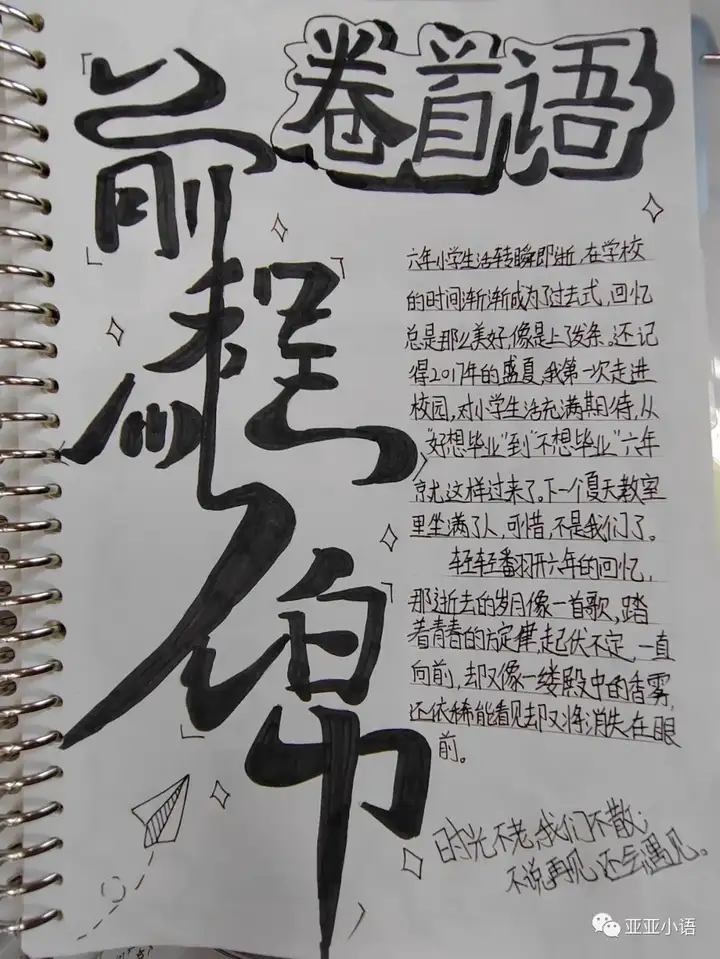 卷首语
前程似锦
六年小学生活转瞬即逝,在学校
的时间渐渐成为了过去式,回忆
总是那么美好,像是上了发条。还记
得2017年的盛夏,我第一次走进
校园,对小学生活充满期待,从
"好想毕业"到"不想毕业"六年
就这样过来了。下一个夏天教室
里坐满了人,可惜,不是我们了。
轻轻翻开六年的回忆,
那逝去的岁月像一首歌,踏
着青春的旋律,起伏不定,一直
向前,却又像一缕殿中的香雾,
还依稀能看见却又将消失在眼
前。
时光不老,我们不散;
不说再见,还会遇见。
亚亚小语